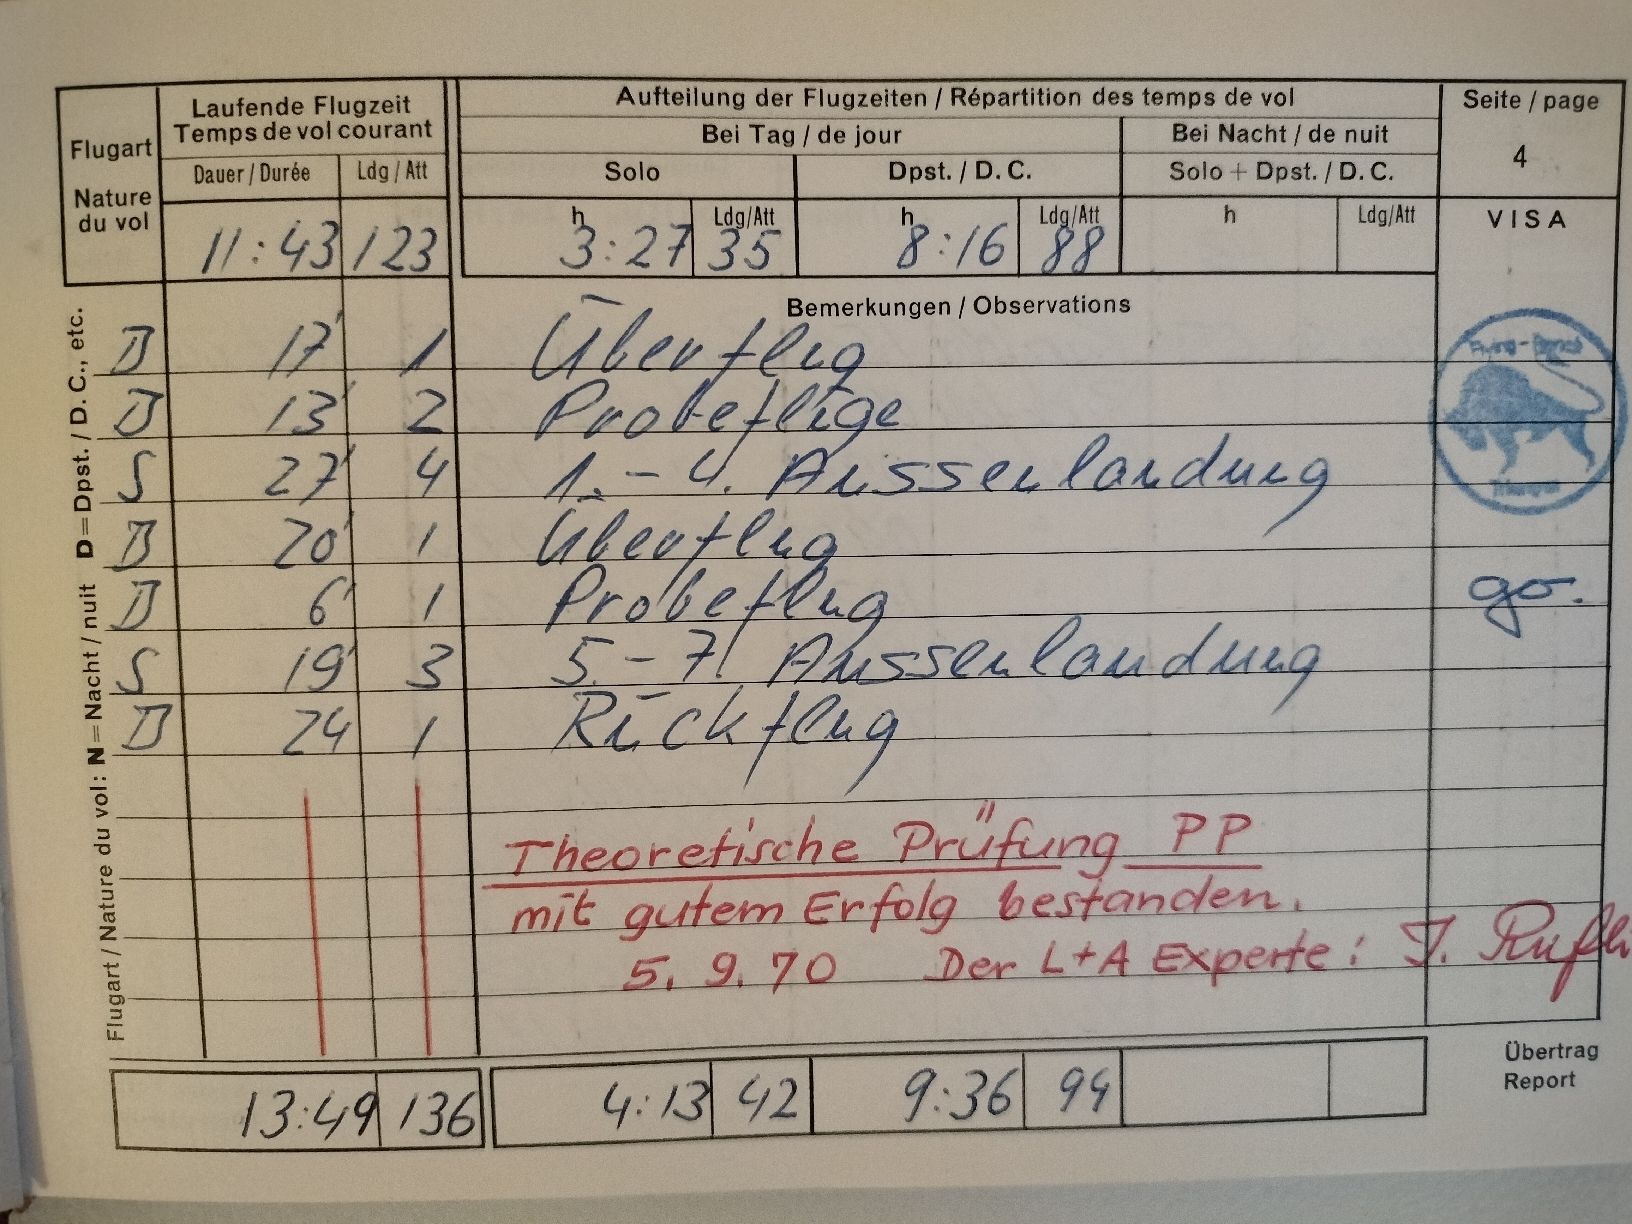 Flugart
Nature
du vol
Laufende Flugzeit
Temps de vol courant
Dauer / Durée
Ldg / Att
Aufteilung der Flugzeiten / Répartition des temps de vol
Bei Tag / de jour
Bei Nacht / de nuit
Solo
Dpst. / D.C.
Solo + Dpst. / D.C.
Seite / page
4
VISA
h
Ldg/Att
h
Ldg/Att
h
Ldg/Att
11:43 123 3:27 35 8:16 88
Bemerkungen / Observations
D 17' 1 Überflug
D 13' 2 Probeflüge
S 27' 4 1.-4. Aussenlandung
D 20' 1 Überflug
D 6' 1 Probeflug
go.
S 19' 3 5.-7. Aussenlandung
D 24 1 Rückflug
Theoretische Prüfung PP
mit gutem Erfolg bestanden.
5. 9. 70 Der L+A Experte: J.
Flugart / Nature du vol: N = Nacht / nuit D = Dpst. / D.C., etc.
13:49 136 4:13 42 9:36 94
Übertrag
Report